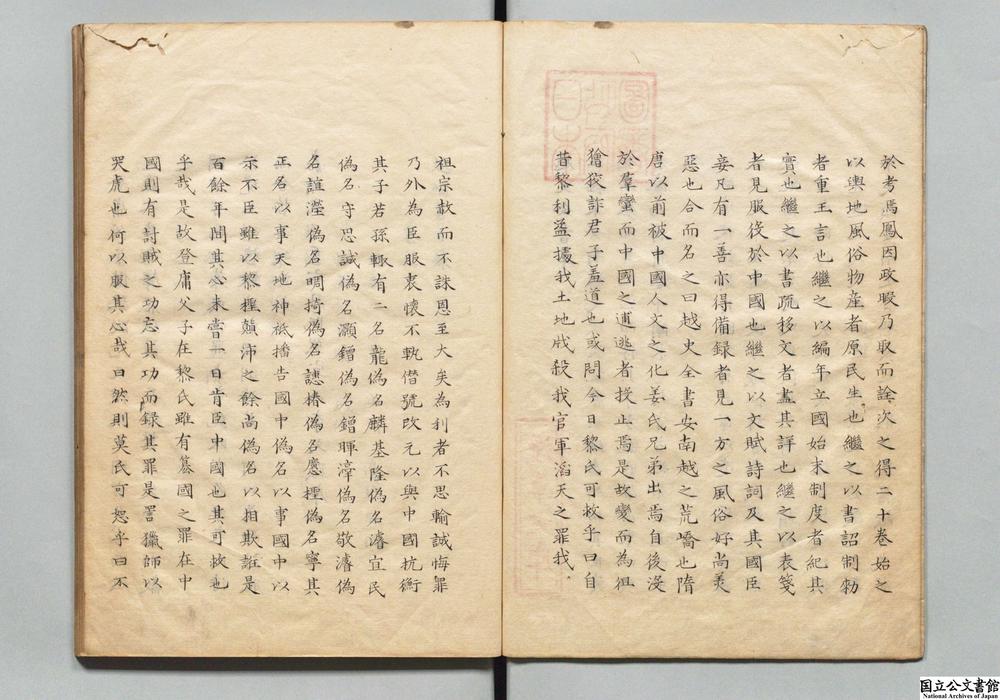 於考焉鳳因政暇乃取而詮次之得二十巻始之
以輿地風俗物産者原民生也繼之以書詔制勑
者重王言也繼之以編年立國始末制度者紀其
實也繼之以書疏移文者盡其詳也繼之以表箋
者見服役於中國也繼之以文賦詩詞及其國臣
妾凡有一善亦得備録者見一方之風俗好尚美
惡也合而名之曰越史全書安南越之荒嶠也隋
唐以前被中國人文之化姜氏兄弟出焉自後淩
於羣蠻而中國之逋逃者投止焉是故變而為狙
獪狡詐君子羞道也或問今日黎氏可救乎曰自
昔黎利盗據我土地戕殺我官軍滔天之罪我
祖宗赦而不誅恩至大矣為利者不思輸誠悔罪
乃外為臣服衷懷不軌僣號改元以與中國抗衡
其子若孫輙有二名龍偽名麟基隆偽名濬宜民
偽名守思誠偽名灝鏳偽名鏳暉漳偽名敬濬偽
名誼瀅偽名晭掎偽名譓椿偽名懬㮙偽名寧其
正名以事天地神祇播告國中偽名以事國中以
示不臣雖以黎㮙顛沛之餘尚偽名以相欺誑是
百餘年間其心未嘗一日肯臣中國也其可救也
乎哉是故登庸父子在黎氏雖有簒國之罪在中
國則有討賊之功忘其功而録其罪是詈獵師以
哭虎也何以服其心哉曰然則莫氏可恕乎曰不
国立公文書館
National Archives of Japan